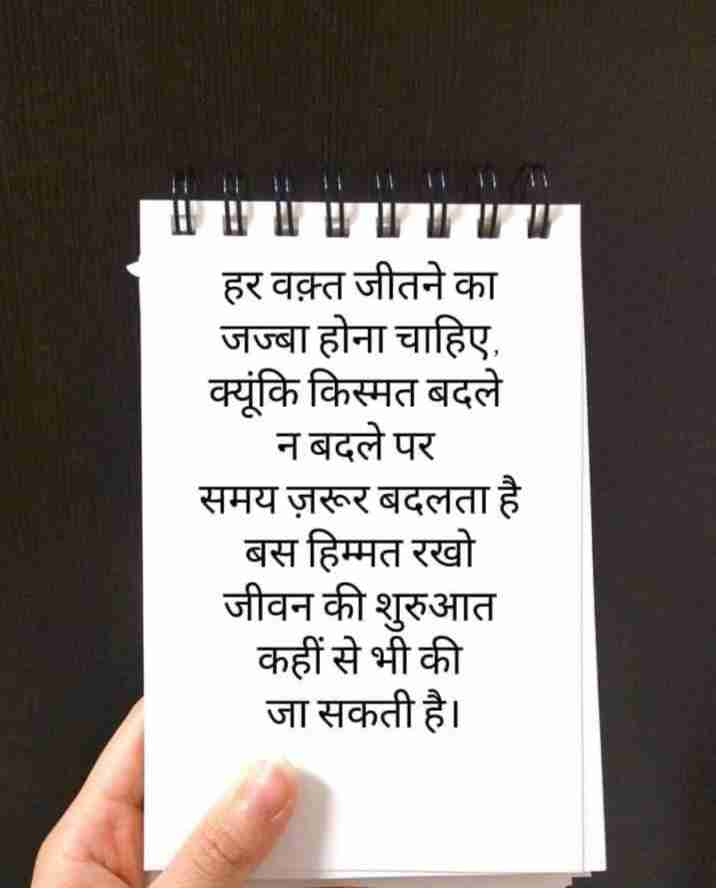 हर वक़्त जीतने का
जज्बा होना चाहिए,
क्यूंकि किस्मत बदले
न बदले पर
समय ज़रूर बदलता है
बस हिम्मत रखो
जीवन की शुरुआत
कहीं से भी की
जा सकती है।